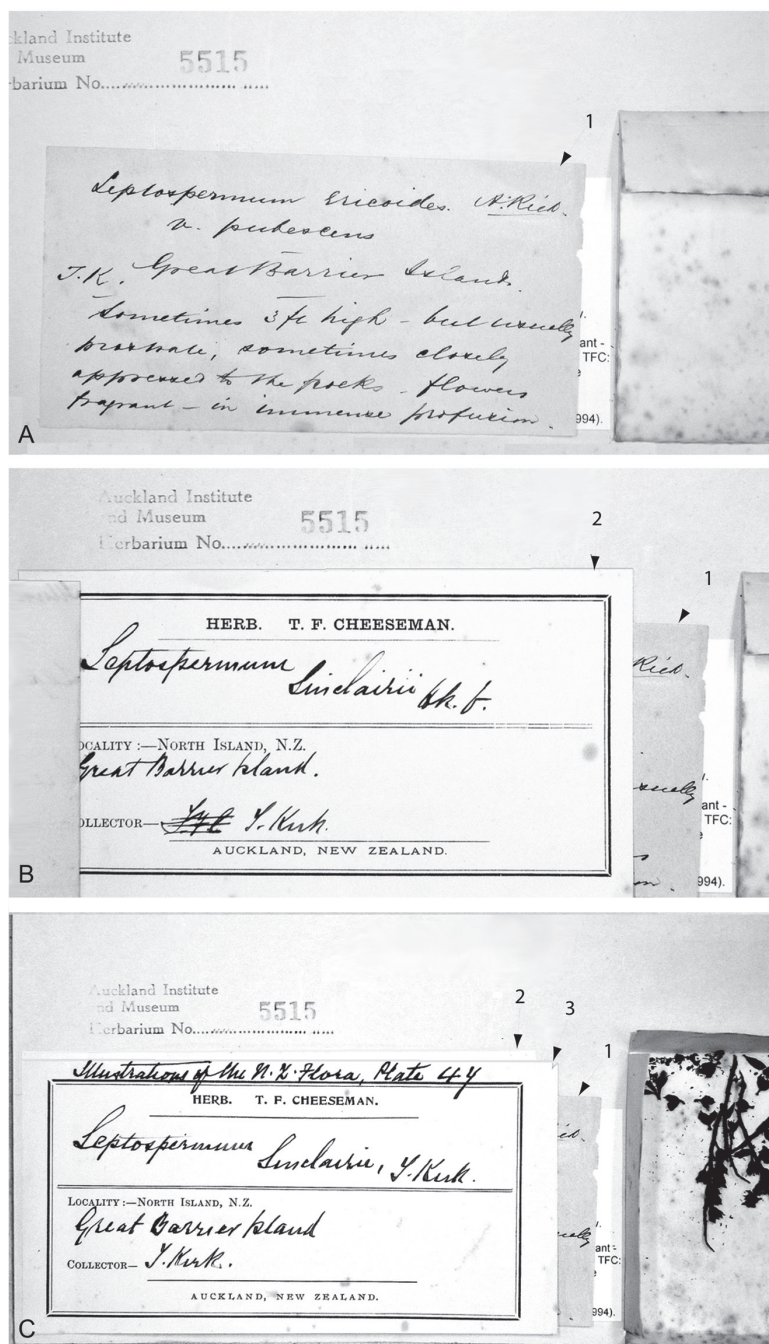 ckland Institute
Museum
rbarium No.
5515
1
Leptospermum ericoides. A. Rich.
v. pubescens
T.K. Great Barrier Island.
Sometimes 3 ft high - but usually
prostrate, sometimes closely
appressed to the rocks - flowers
fragrant - in immense profusion.
ant -
TFC:
994).
A
Auckland Institute
nd Museum
Herbarium No.
5515
2
1
HERB. T. F. CHEESEMAN.
Leptospermum
Sinclairii Hk. f.
OCALITY :—NORTH ISLAND, N.Z.
Great Barrier Island.
OLLECTOR— T. Kirk.
AUCKLAND, NEW ZEALAND.
Rich.
sually
ant -
TFC:
994).
B
Auckland Institute
nd Museum
Herbarium No.
5515
2
3
1
Illustrations of the N.Z. Flora, Plate 44
HERB. T. F. CHEESEMAN.
Leptospermum
Sinclairii, T. Kirk.
LOCALITY :—NORTH ISLAND, N.Z.
Great Barrier Island
COLLECTOR— T. Kirk.
AUCKLAND, NEW ZEALAND.
ich.
ually
ant -
TFC:
994).
C